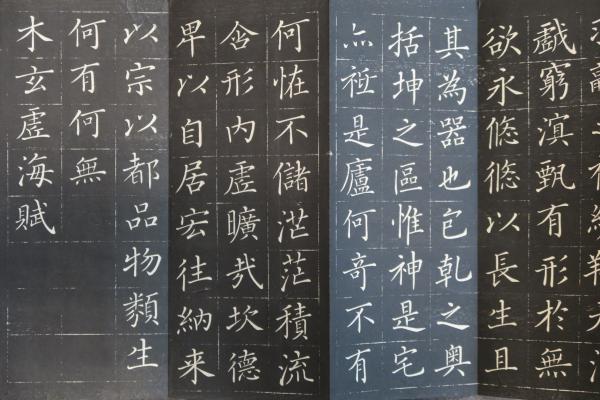 戲窮溟甄有形於無
欲永悠悠以長生且
其為器也包乾之奧
括坤之區惟神是宅
亦祗是廬何奇不有
何恠不儲茫茫積流
含形內虛曠哉坎德
卑以自居宏往納来
以宗以都品物類生
何有何無
木玄虛海賦